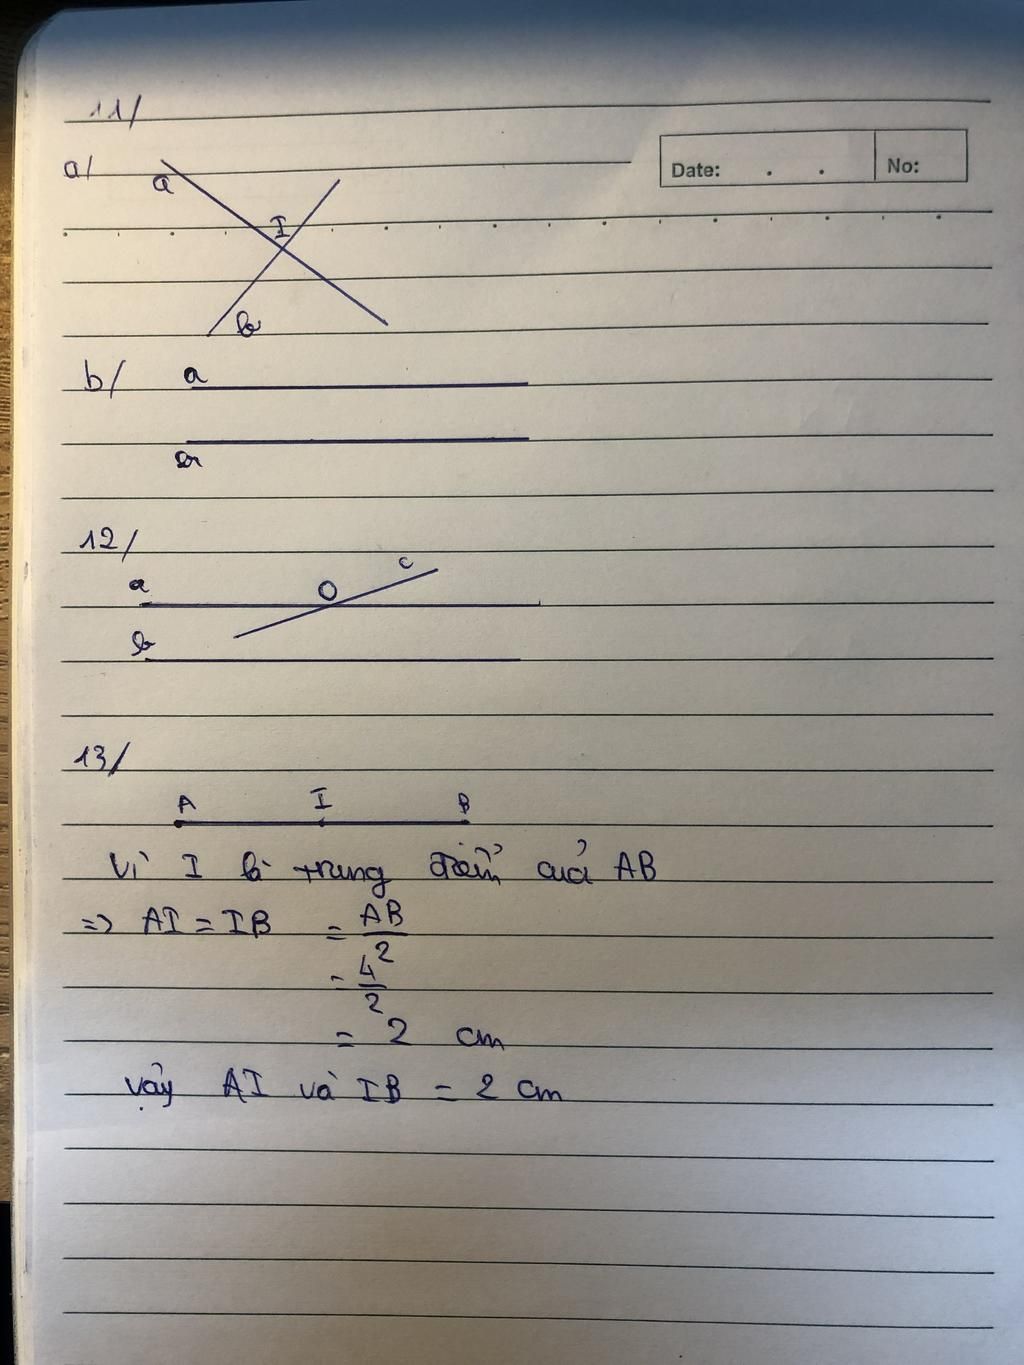 11/
Date: . . No:
a/
a
I
b
b/
a
b
12/
a
O
c
b
13/
A I B
Vì I là trung điểm của AB
=> AI = IB = AB/2
= 4/2
= 2 cm
vậy AI và IB = 2 cm